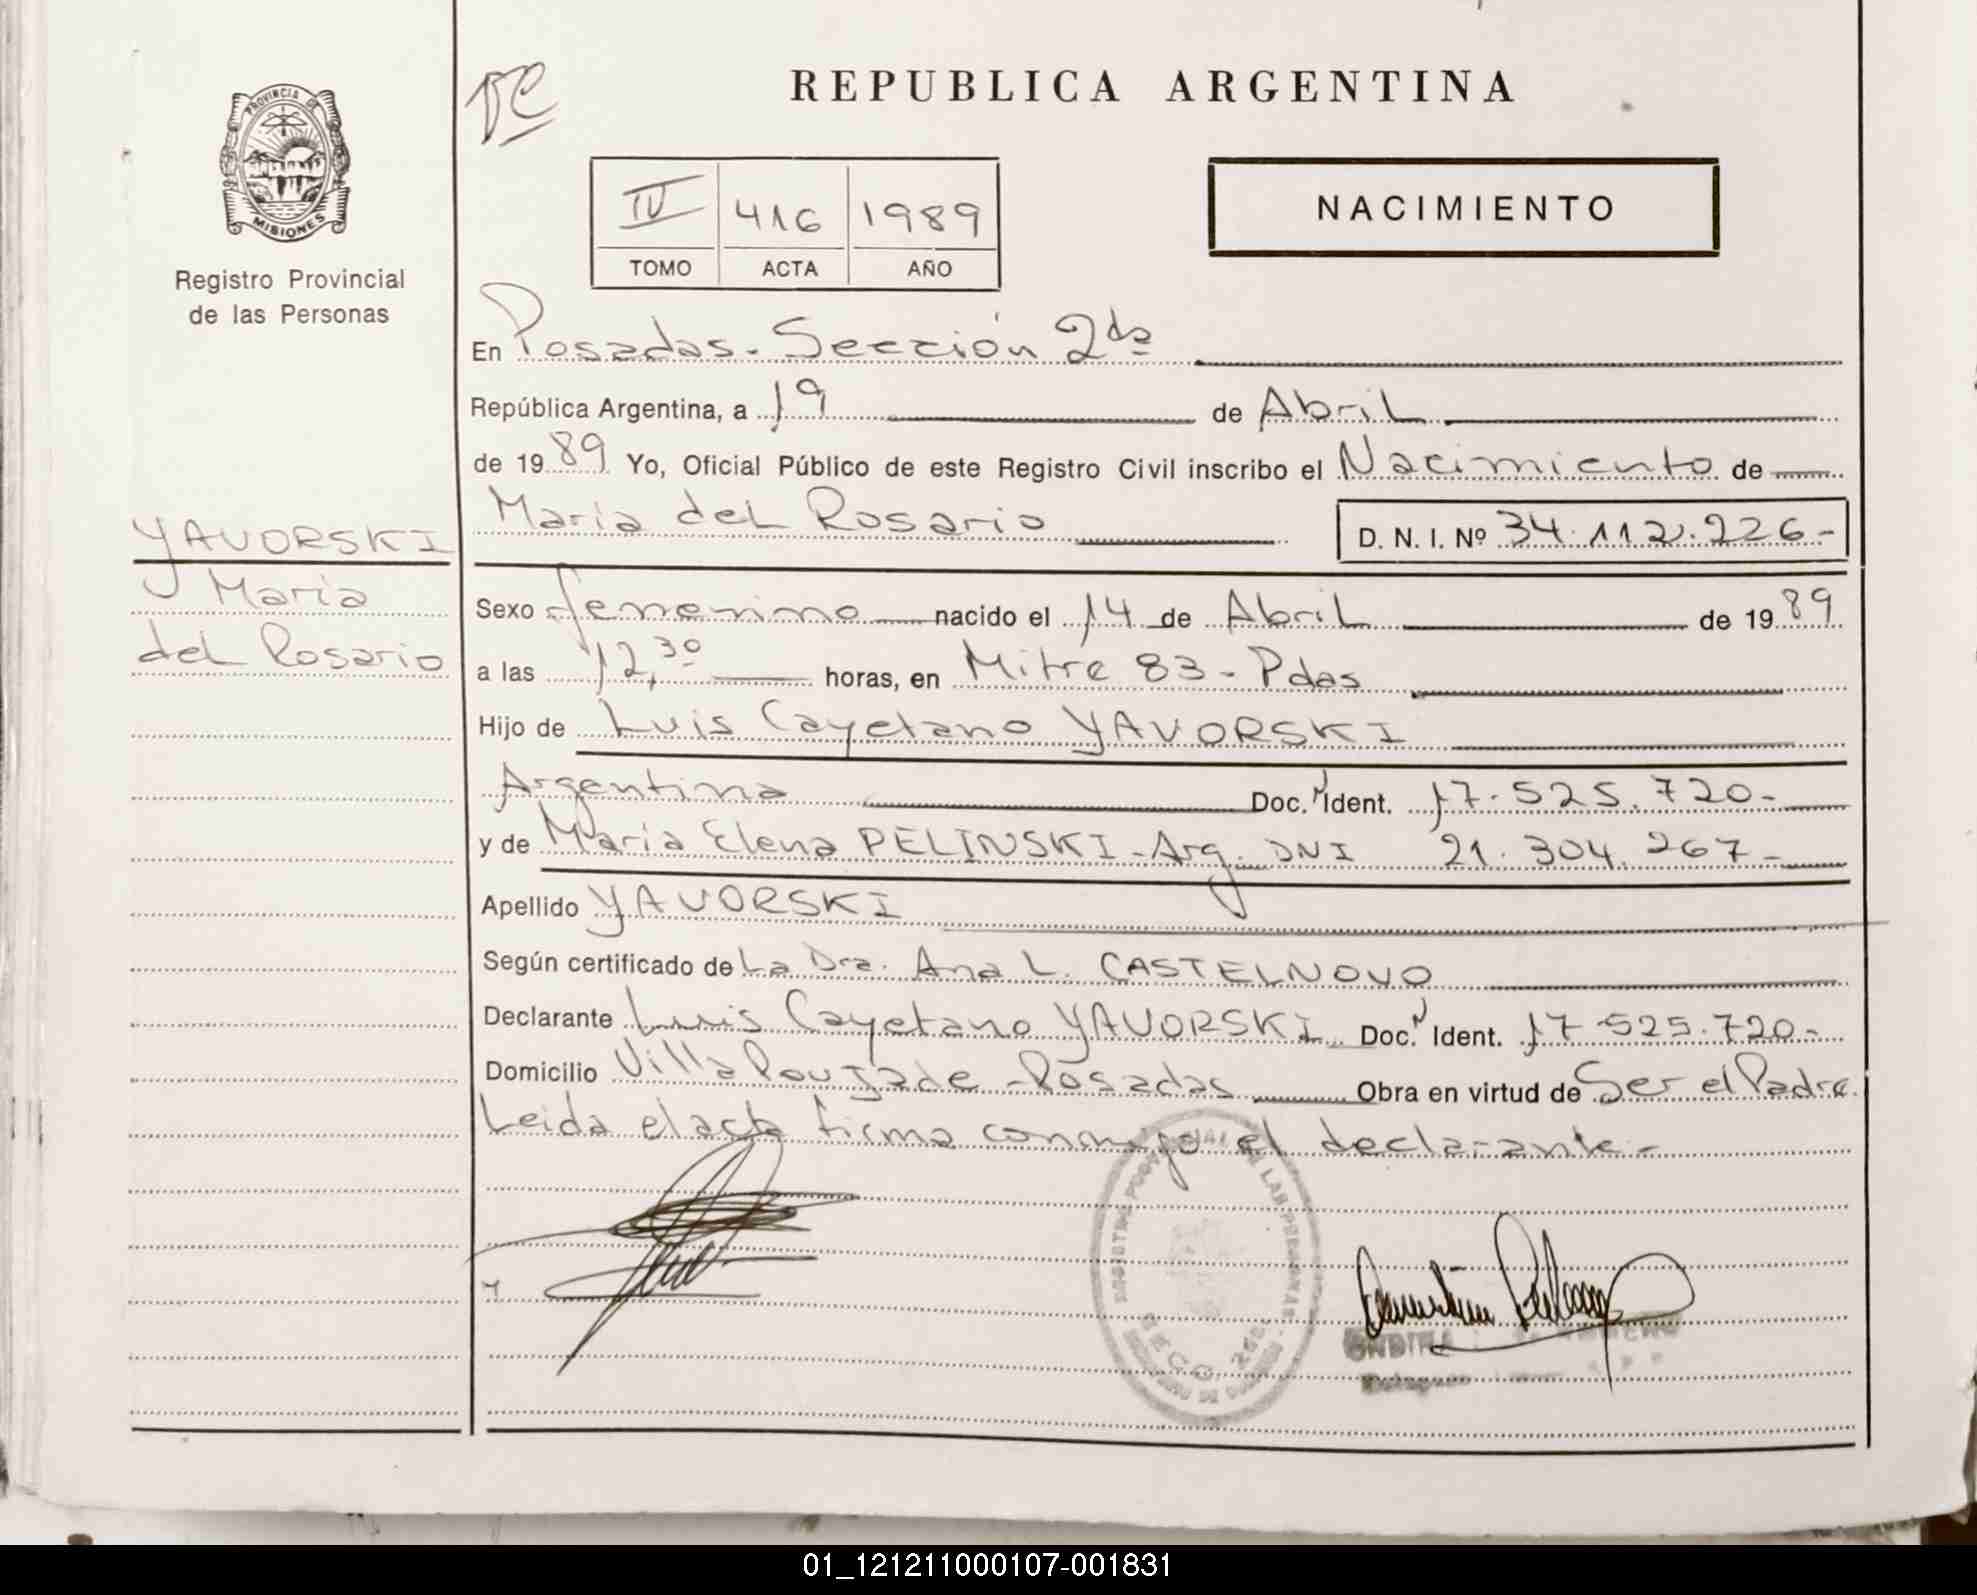 PROVINCIA DE
MISIONES
Registro Provincial
de las Personas
YAVORSKI
Maria
del Rosario
REPUBLICA ARGENTINA
IV 416 1989
TOMO ACTA AÑO
NACIMIENTO
En Posadas - Sección 2da
República Argentina, a 19 de Abril
de 1989 Yo, Oficial Público de este Registro Civil inscribo el Nacimiento de
Maria del Rosario D. N. I. Nº 34.112.226-
Sexo femenino nacido el 14 de Abril de 1989
a las 12,30 horas, en Mitre 83 - Pdas
Hijo de Luis Cayetano YAVORSKI
Argentina Doc. Ident. 17.525.720-
y de Maria Elena PELINSKI - Arg. DNI 21.304.267-
Apellido YAVORSKI
Según certificado de La Dra. Ana L. CASTELNOVO
Declarante Luis Cayetano YAVORSKI Doc. Ident. 17.525.720-
Domicilio Villa Poujade - Posadas Obra en virtud de Ser el Padre.
Leida el acta firma conmigo el declarante-
01_121211000107-001831